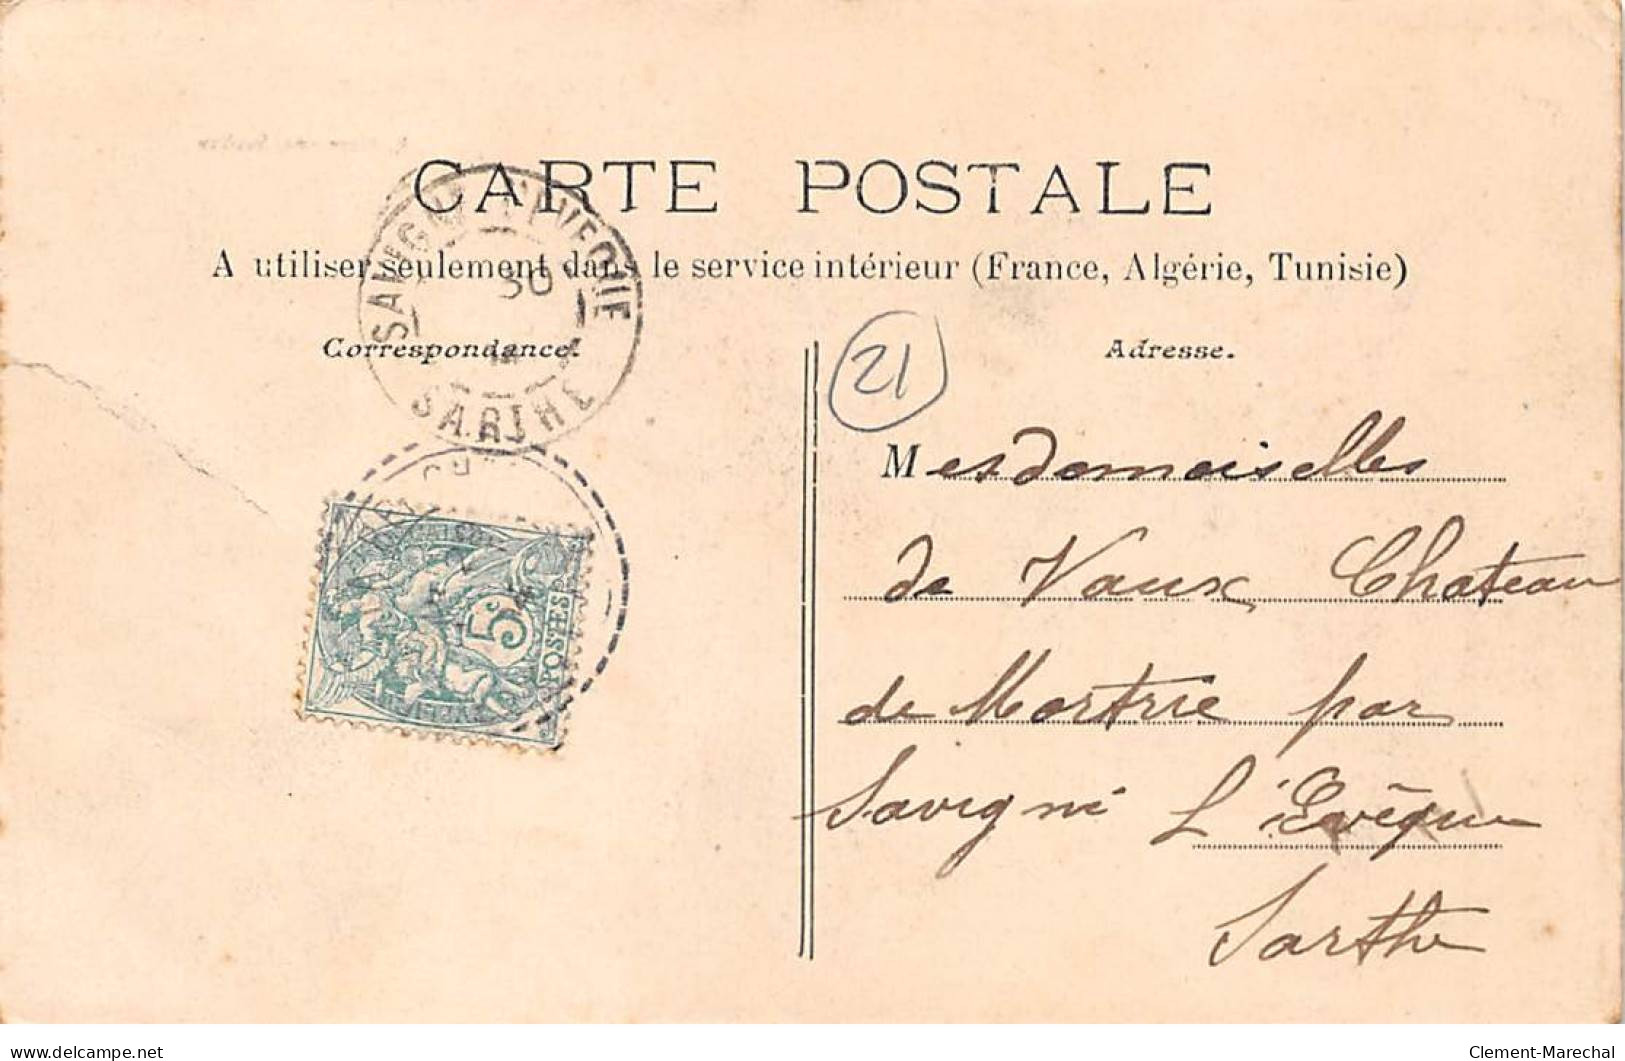 CARTE POSTALE
A utiliser seulement dans le service intérieur (France, Algérie, Tunisie)
Correspondance.
Adresse.
SAVIGNÉ-L'EVEQUE
30
SARTHE
21
5c
POSTES
Mesdemoiselles
de Vaux Chateau
de Mortrie par
Savigni L'Evêque
Sarthe
www.delcampe.net
Clement-Marechal